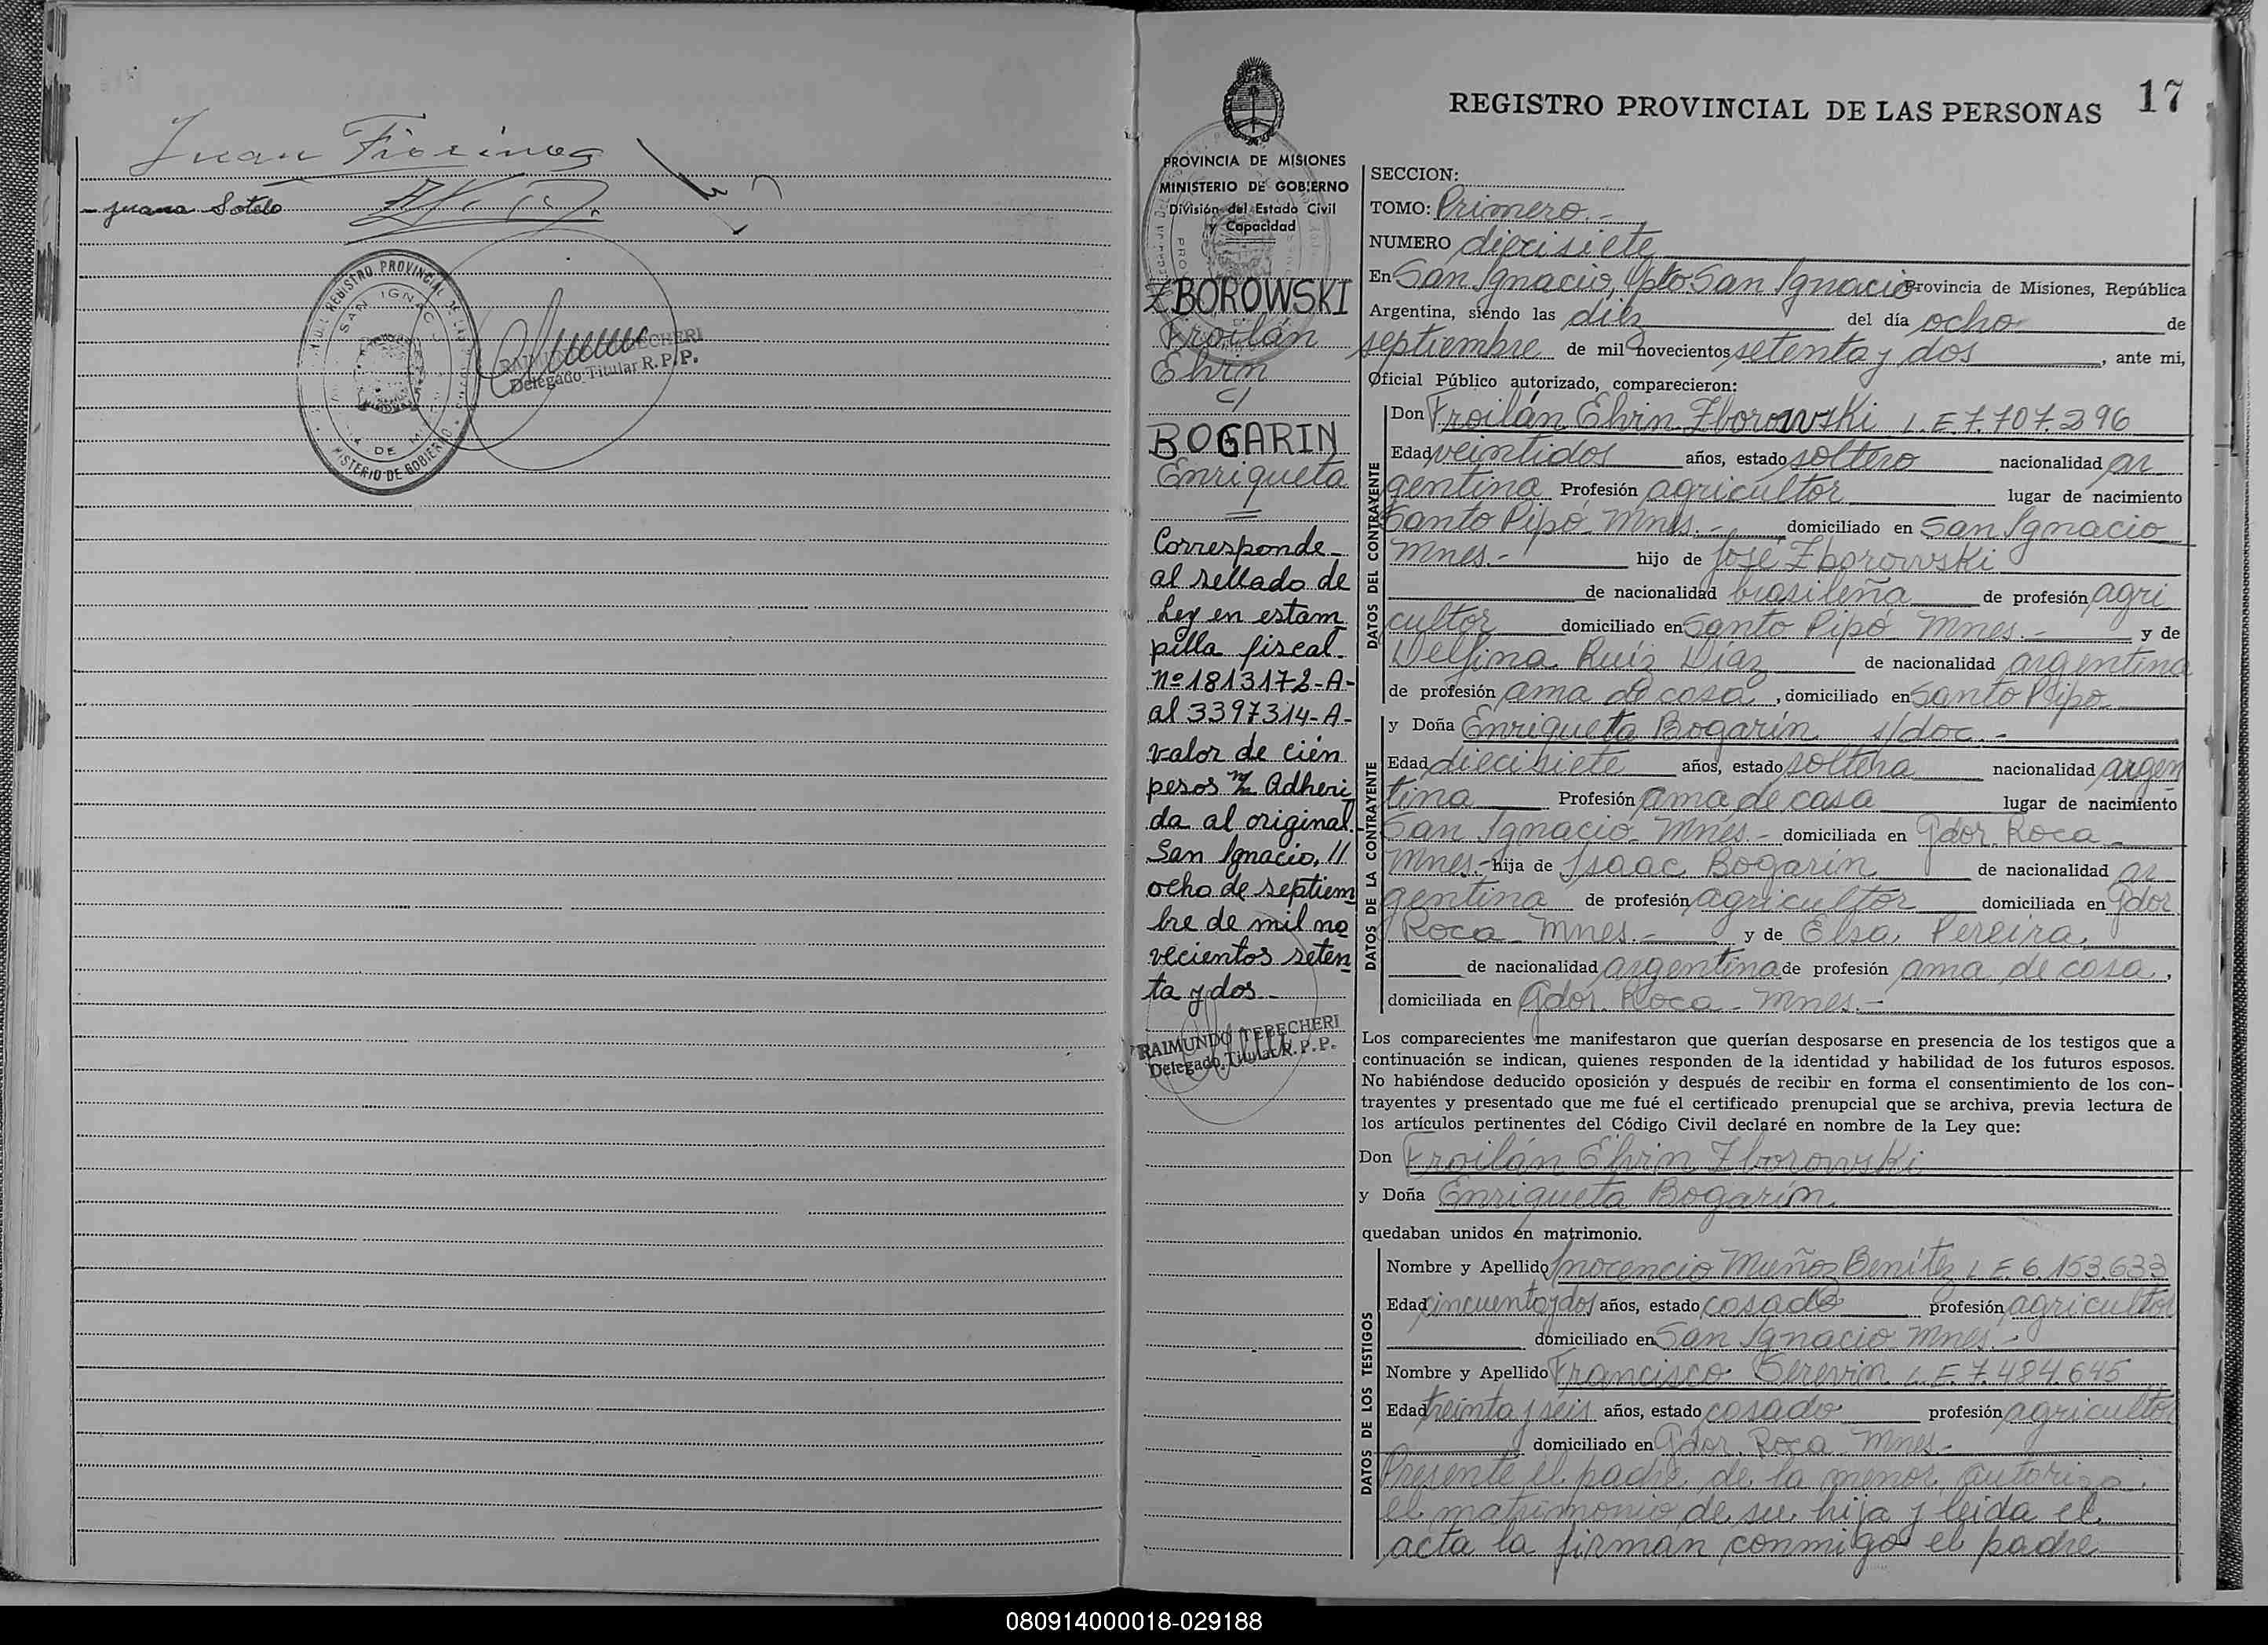 Juan
Juana Sotelo
REGISTRO PROVINCIAL DE LAS PERSONAS
SAN IGNACIO
MINISTERIO DE GOBIERNO
RAIMUNDO TEBECHERI
Delegado Titular R.P.P.
REGISTRO PROVINCIAL DE LAS PERSONAS 17
PROVINCIA DE MISIONES
MINISTERIO DE GOBIERNO
División del Estado Civil
y Capacidad
ZBOROWSKI
Froilán
Ehrin
c/
BOGARIN
Enriqueta
Corresponde
al sellado de
Ley en estam
pilla fiscal
Nº 1813172-A-
al 3397314-A-
valor de cién
pesos m/n Adheri
da al original.-
San Ignacio, 11
ocho de septiem
bre de mil no
vecientos seten
ta y dos.-
RAIMUNDO TEBECHERI
Delegado Titular R.P.P.
SECCION:
TOMO: Primero.-
NUMERO diecisiete
En San Ignacio, Dpto San Ignacio Provincia de Misiones, República
Argentina, siendo las diez del día ocho de
septiembre de mil novecientos setenta y dos, ante mi,
Oficial Público autorizado, comparecieron:
DATOS DEL CONTRAYENTE
Don Froilán Ehrin Zborowski L.E. 7.707.296
Edad veintidos años, estado soltero nacionalidad ar
gentina Profesión agricultor lugar de nacimiento
Santo Pipó Mnes.- domiciliado en San Ignacio
Mnes.- hijo de José Zborowski
de nacionalidad brasileña de profesión agri
cultor domiciliado en Santo Pipó Mnes.- y de
Delfina Ruíz Díaz de nacionalidad argentina
de profesión ama de casa, domiciliado en Santo Pipo
DATOS DE LA CONTRAYENTE
y Doña Enriqueta Bogarín s/doc.-
Edad diecisiete años, estado soltera nacionalidad argen
tina Profesión ama de casa lugar de nacimiento
San Ignacio Mnes.- domiciliada en Gdor. Roca
Mnes.- hija de Isaac Bogarín de nacionalidad ar
gentina de profesión agricultor domiciliada en Gdor
Roca Mnes.- y de Elsa Pereira
de nacionalidad argentina de profesión ama de casa,
domiciliada en Gdor. Roca Mnes.-
Los comparecientes me manifestaron que querían desposarse en presencia de los testigos que a
continuación se indican, quienes responden de la identidad y habilidad de los futuros esposos.
No habiéndose deducido oposición y después de recibir en forma el consentimiento de los con-
trayentes y presentado que me fué el certificado prenupcial que se archiva, previa lectura de
los artículos pertinentes del Código Civil declaré en nombre de la Ley que:
Don Froilán Ehrin Zborowski
y Doña Enriqueta Bogarín
quedaban unidos en matrimonio.
DATOS DE LOS TESTIGOS
Nombre y Apellido Inocencio Muñoz Benítez L.E. 6.153.633
Edad cincuenta y dos años, estado casado profesión agricultor
domiciliado en San Ignacio Mnes.-
Nombre y Apellido Francisco L.E. 7.484.645
Edad treinta y seis años, estado casado profesión agricultor
domiciliado en Gdor. Roca Mnes.-
Presente el padre de la menor autoriza
el matrimonio de su hija y leida el
acta la firman conmigo el padre
080914000018-029188